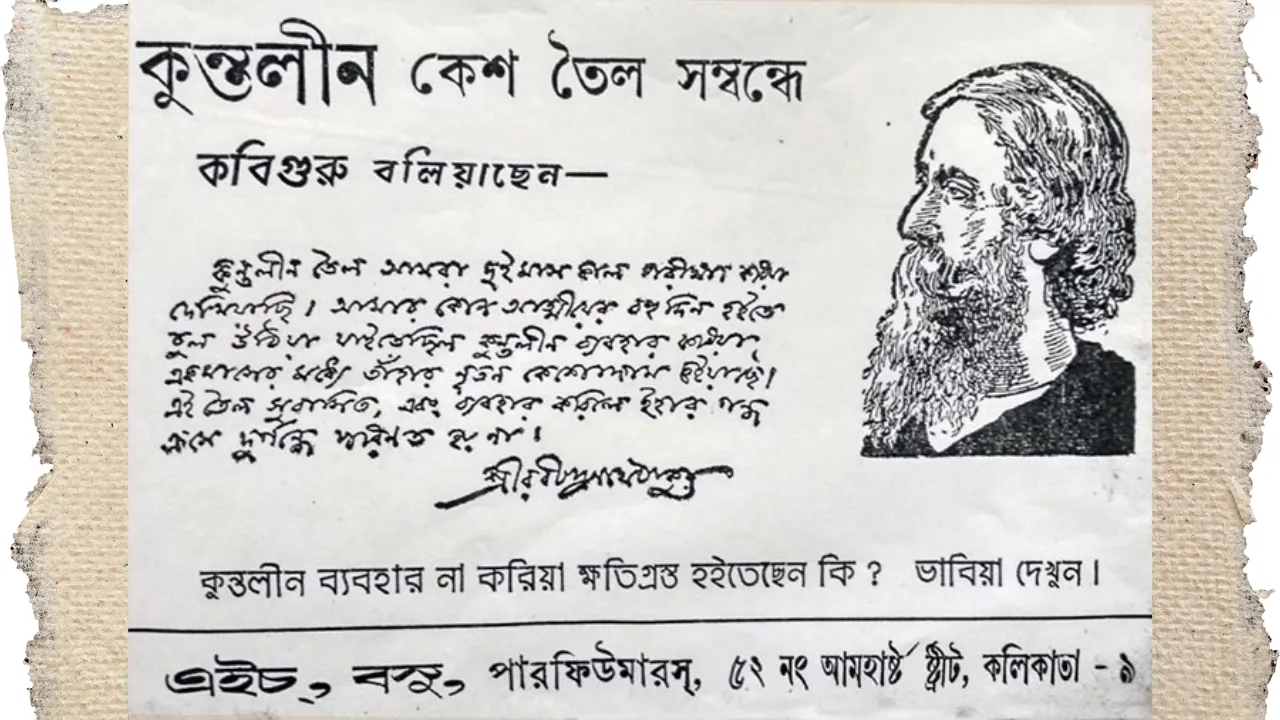 কুন্তলীন কেশ তৈল সম্বন্ধে
কবিগুরু বলিয়াছেন—
কুন্তলীন তৈল আমরা দুইমাস কাল পরীক্ষা করিয়া
দেখিয়াছি। আমার কোন আত্মীয়ের বহু দিন হইতে
চুল উঠিয়া যাইতেছিল কুন্তলীন ব্যবহার করিয়া
একমাসের মধ্যে তাঁহার নূতন কেশোদ্গম হইয়াছে।
এই তৈল সুবাসিত, এবং ব্যবহার করিলে ইহার গন্ধ
ক্রমে দুর্গন্ধে পরিণত হয় না।
শ্রীরবীন্দ্রনাথ ঠাকুর
কুন্তলীন ব্যবহার না করিয়া ক্ষতিগ্রস্ত হইতেছেন কি ? ভাবিয়া দেখুন।
এইচ, বসু, পারফিউমারস্, ৫২ নং আমহার্ষ্ট ষ্ট্রীট, কলিকাতা - ৯